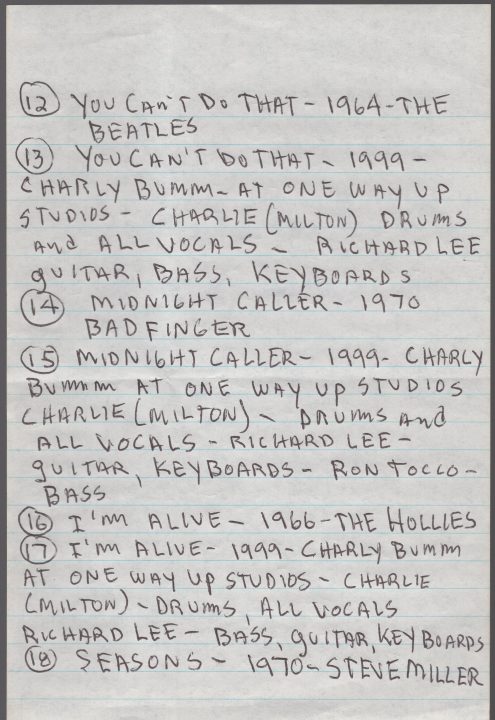 12 YOU CAN'T DO THAT - 1964 - THE
BEATLES
13 YOU CAN'T DO THAT - 1999 -
CHARLY BUMM - AT ONE WAY UP
STUDIOS - CHARLIE (MILTON) DRUMS
AND ALL VOCALS - RICHARD LEE
GUITAR, BASS, KEYBOARDS
14 MIDNIGHT CALLER - 1970
BADFINGER
15 MIDNIGHT CALLER - 1999 - CHARLY
BUMMM AT ONE WAY UP STUDIOS
CHARLIE (MILTON) - DRUMS AND
ALL VOCALS - RICHARD LEE -
GUITAR, KEYBOARDS - RON TOCCO -
BASS
16 I'M ALIVE - 1966 - THE HOLLIES
17 I'M ALIVE - 1999 - CHARLY BUMM
AT ONE WAY UP STUDIOS - CHARLIE
(MILTON) - DRUMS, ALL VOCALS
RICHARD LEE - BASS, GUITAR, KEYBOARDS
18 SEASONS - 1970 - STEVE MILLER